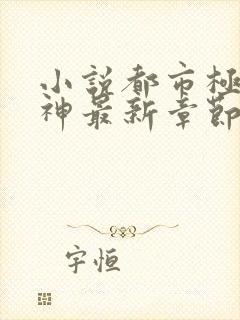 小説都市極
神最新章節
宇恒